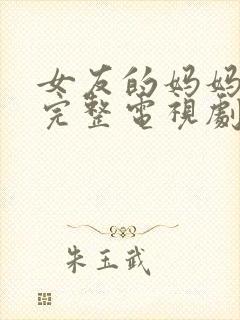 女友的妈妈
完整電視劇
朱玉武